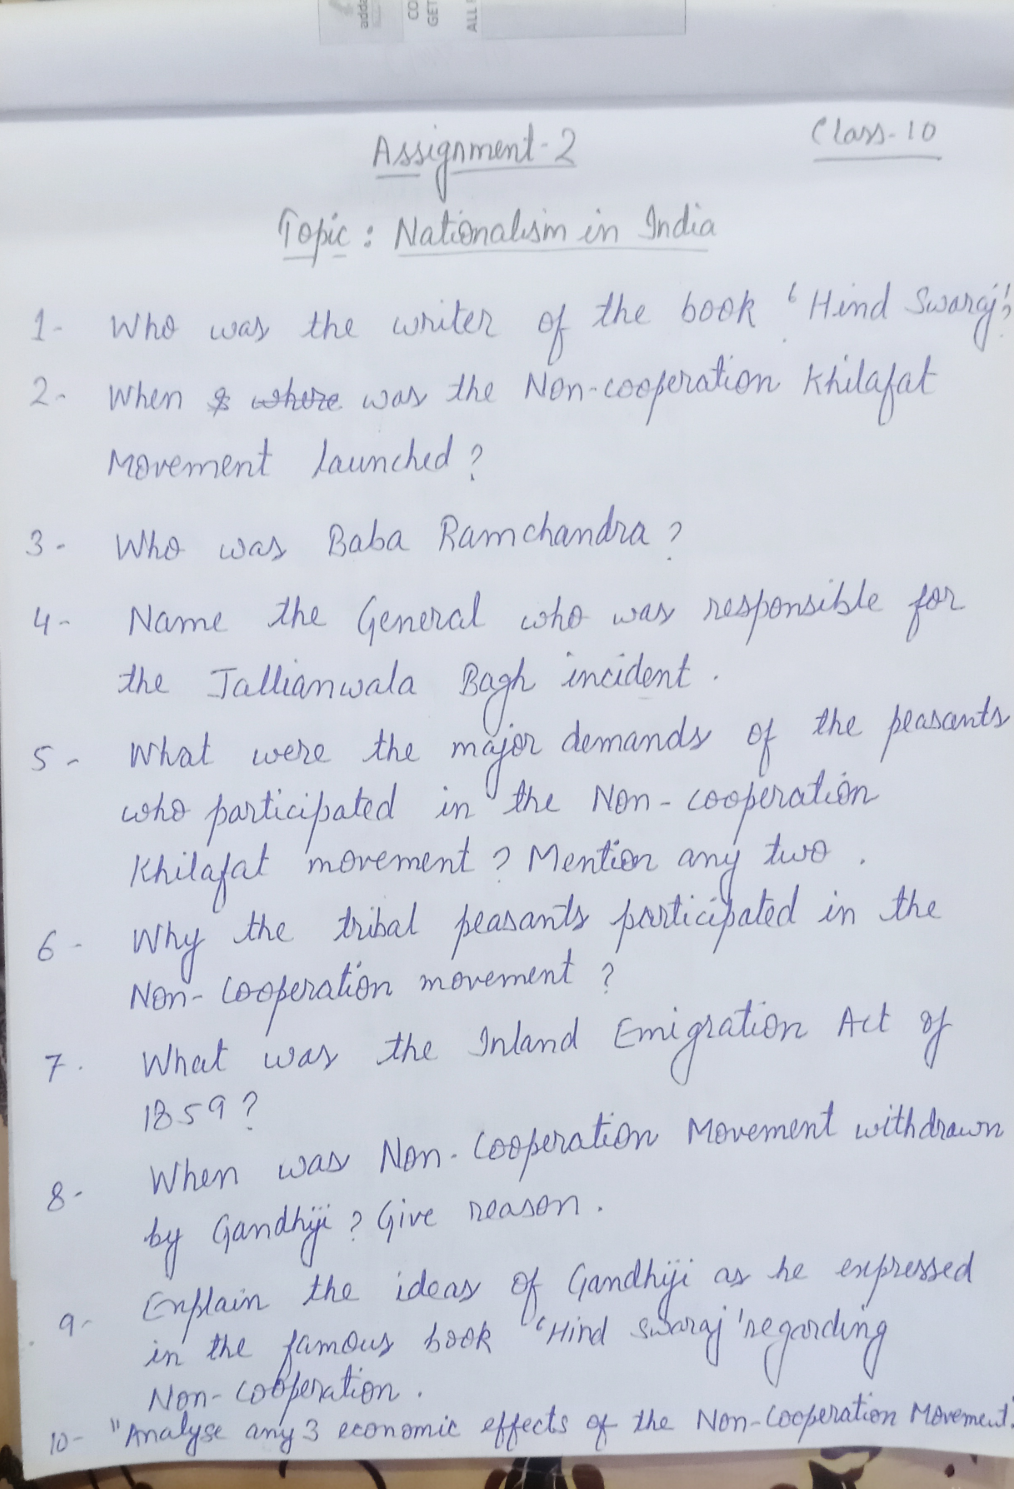 adda
CO
GET
ALL
Assignment-2
Class-10
Topic: Nationalism in India
1- Who was the writer of the book 'Hind Swaraj'?
2- When & where was the Non-cooperation Khilafat
Movement launched?
3- Who was Baba Ramchandra?
4- Name the General who was responsible for
the Jallianwala Bagh incident.
5- What were the major demands of the peasants
who participated in the Non-cooperation
Khilafat movement? Mention any two.
6- Why the tribal peasants participated in the
Non-Cooperation movement?
7. What was the Inland Emigration Act of
1859?
8- When was Non-Cooperation Movement withdrawn
by Gandhiji? Give reason.
9- Explain the ideas of Gandhiji as he expressed
in the famous book "Hind swaraj' regarding
Non-cooperation.
10- "Analyse any 3 economic effects of the Non-Cooperation Movement.